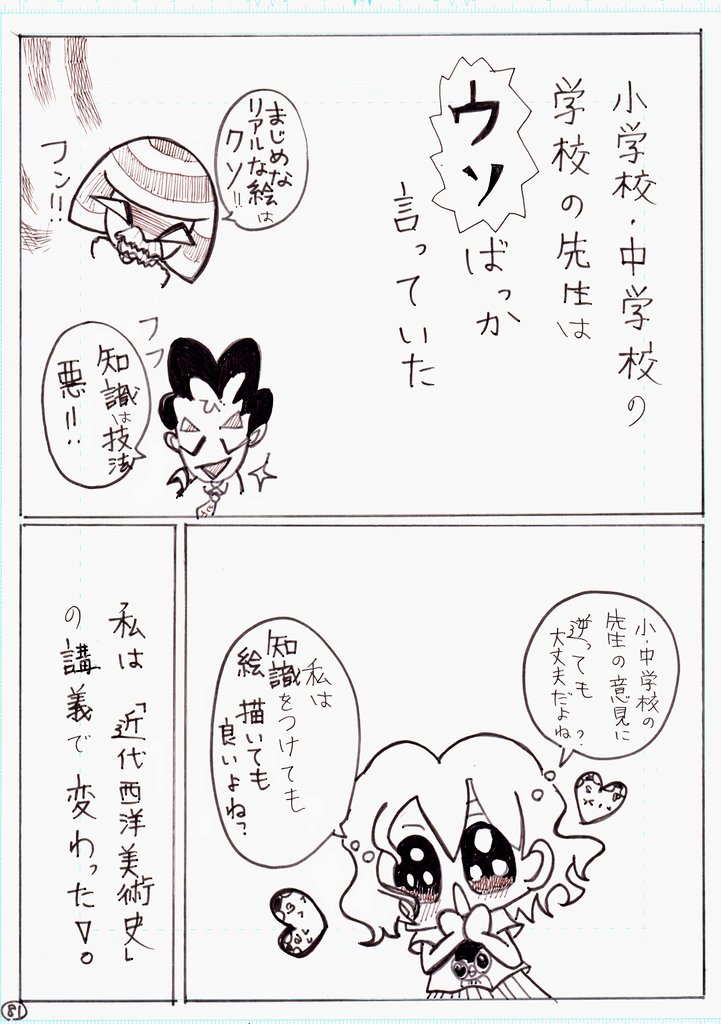 小学校・中学校の
学校の先生は
ウソばっか
言っていた
まじめな
リアルな絵は
クソ!!
フン!!
フフ
知識は技法
悪!!
び
小・中学校の
先生の意見に
逆っても
大丈夫だよね?
私は
知識をつけても
絵 描いても
良いよね?
私は「近代西洋美術史」
の講義で変わった!。
81